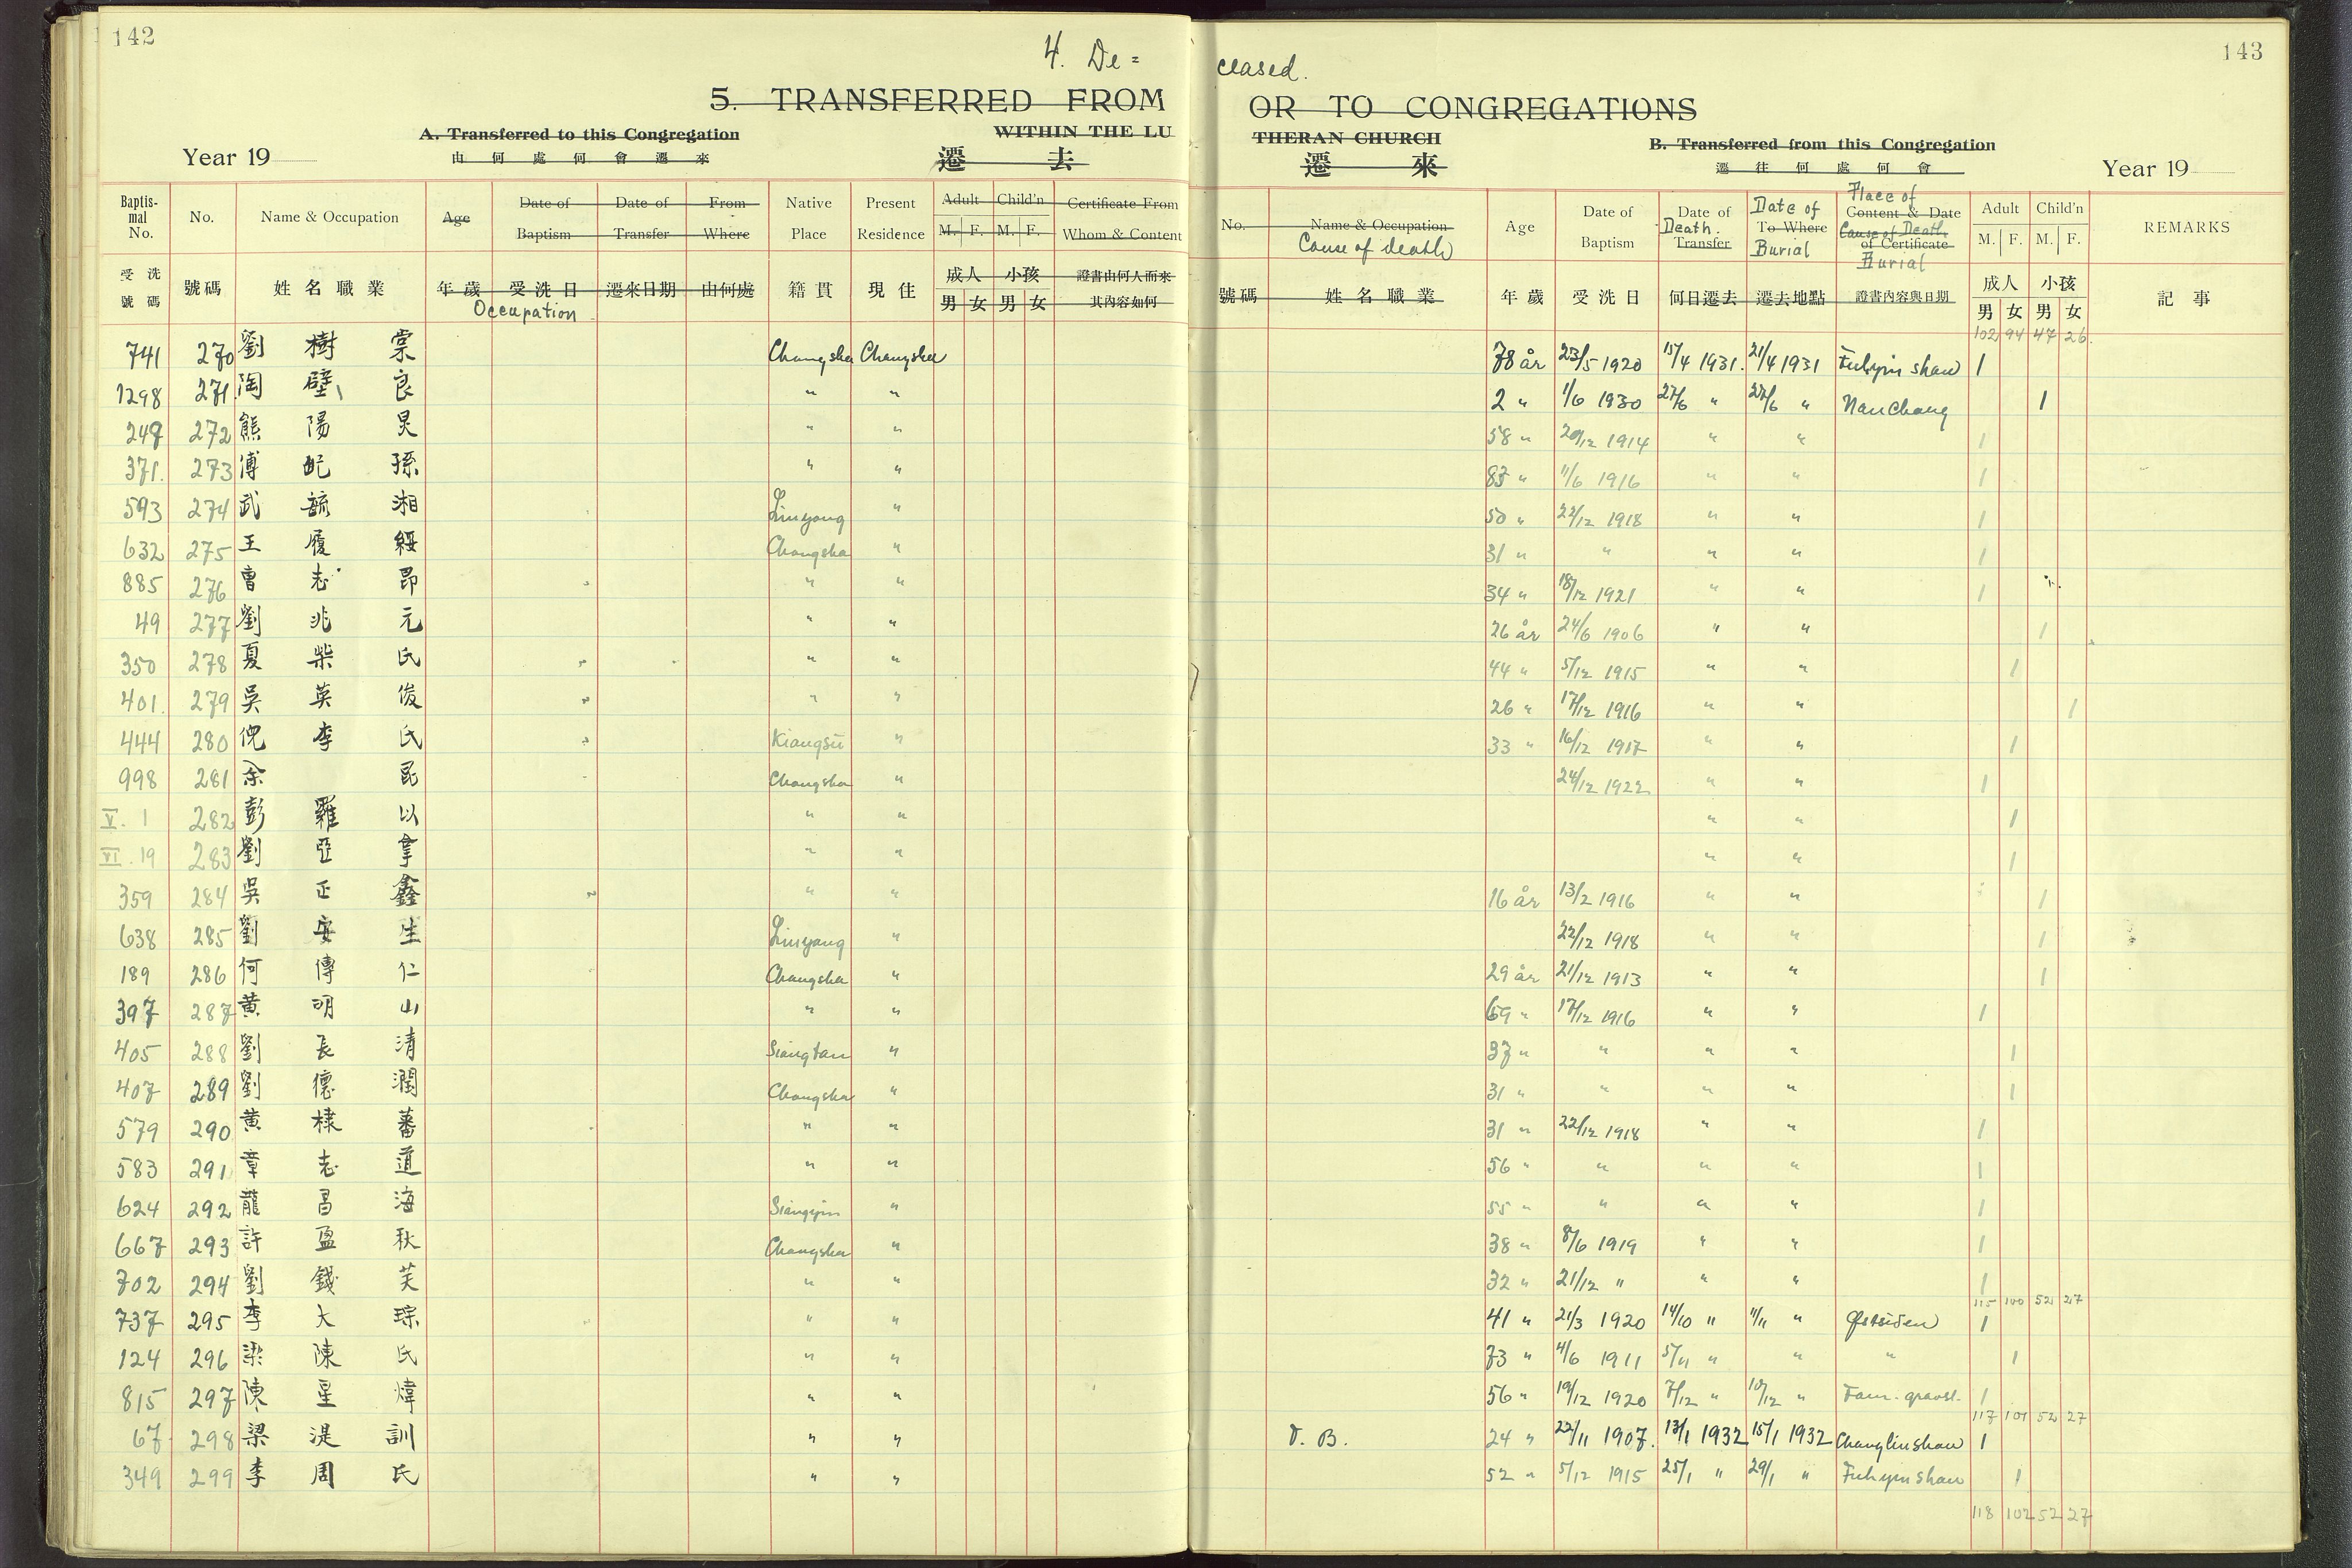 142
4. De=
5. TRANSFERRED FROM
A. Transferred to this Congregation WITHIN THE LU
Year 19 由何處何會遷來 遷去
Baptismal No. No. Name & Occupation Age Date of Baptism Date of Transfer From Where Native Place Present Residence Adult M. F. Child'n M. F. Certificate From Whom & Content
受洗號碼 號碼 姓名職業 年歲 受洗日 遷來日期 由何處 籍貫 現住 成人 男 女 小孩 男 女 證書由何人而來其內容如何
Occupation
741 270 劉樹棠 Changsha Changsha
1298 271 陶壁良 " "
248 272 熊陽炅 " "
371. 273 傅 孫 " "
593 274 武毓湘 Liuyang "
632 275 王履綏 Changsha "
885 276 曹志昂 " "
49 277 劉兆元 " "
350 278 夏柴氏 " "
401. 279 吳英俊 " "
444 280 倪李氏 Kiangsü "
998 281 余 民 Changsha "
V. 1 282 彭羅以 " "
VI. 19 283 劉亞拿 " "
359 284 吳正鑫 " "
638 285 劉安生 Liuyang "
189 286 何傳仁 Changsha "
397 287 黃明山 " "
405 288 劉長清 Siangtan "
407 289 劉德潤 Changsha "
579 290 黃棣蕃 " "
583 291 章志道 " "
624 292 龍昌海 Siangyin "
667 293 許盈秋 Changsha "
702 294 劉錢芙 " "
737 295 李大琮 " "
124 296 梁陳氏 " "
815 297 陳星煒 " "
67 298 梁湜訓 " "
349 299 李周氏 " "
143
ceased.
OR TO CONGREGATIONS
THERAN CHURCH B. Transferred from this Congregation
遷來 遷往何處何會 Year 19
No. Name & Occupation Cause of death Age Date of Baptism Date of Death. Transfer Date of To Where Burial Place of Content & Date Cause of Death of Certificate Burial Adult M. F. Child'n M. F. REMARKS
號碼 姓名職業 年歲 受洗日 何日遷去 遷去地點 證書內容與日期 成人 男 女 小孩 男 女 記事
102 94 47 26
78 år 23/5 1920 15/4 1931. 21/4 1931 Fuhyin shan 1
2 " 1/6 1930 27/6 " 27/6 " Nanchang 1
58 " 20/12 1914 " " 1
83 " 11/6 1916 " " 1
50 " 22/12 1918 " " 1
31 " " " " 1
34 " 18/12 1921 " " 1
26 år 24/6 1906 " " 1
44 " 5/12 1915 " " 1
26 " 17/12 1916 " " 1
33 " 16/12 1917 " " 1
24/12 1922 " " 1
" " 1
" " 1
16 år 13/2 1916 " " 1
22/12 1918 " " 1
29 år 21/12 1913 " " 1
69 " 17/12 1916 " " 1
37 " " " " 1
31 " " " " 1
31 " 22/12 1918 " " 1
56 " " " " 1
55 " " " " 1
38 " 8/6 1919 " " 1
32 " 21/12 " " " 1
115 100 52 27
41 " 21/3 1920 14/10 " 1/11 " Østsiden 1
73 " 4/6 1911 5/11 " " " 1
56 " 19/12 1920 7/12 " 10/12 " Fam. gravst. 1
117 101 52 27
T. B. 24 " 22/11 1907. 13/1 1932 15/1 1932 Changlinshan 1
52 " 5/12 1915 25/1 " 29/1 " Fuhyinshan 1
118 102 52 27